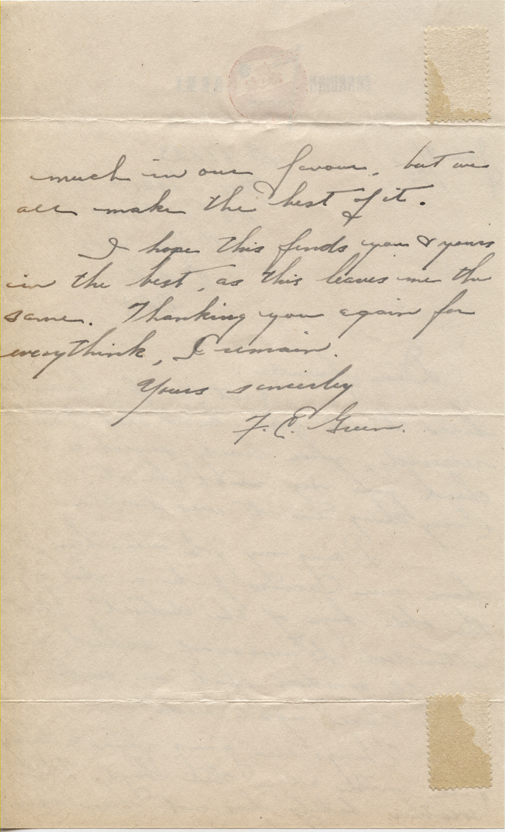 much in our favour, but we
all make the best of it.
I hope this finds you & yours
in the best, as this leaves me the
same. Thanking you again for
everythink, I remain.
Yours sincerley
F. E. Green.